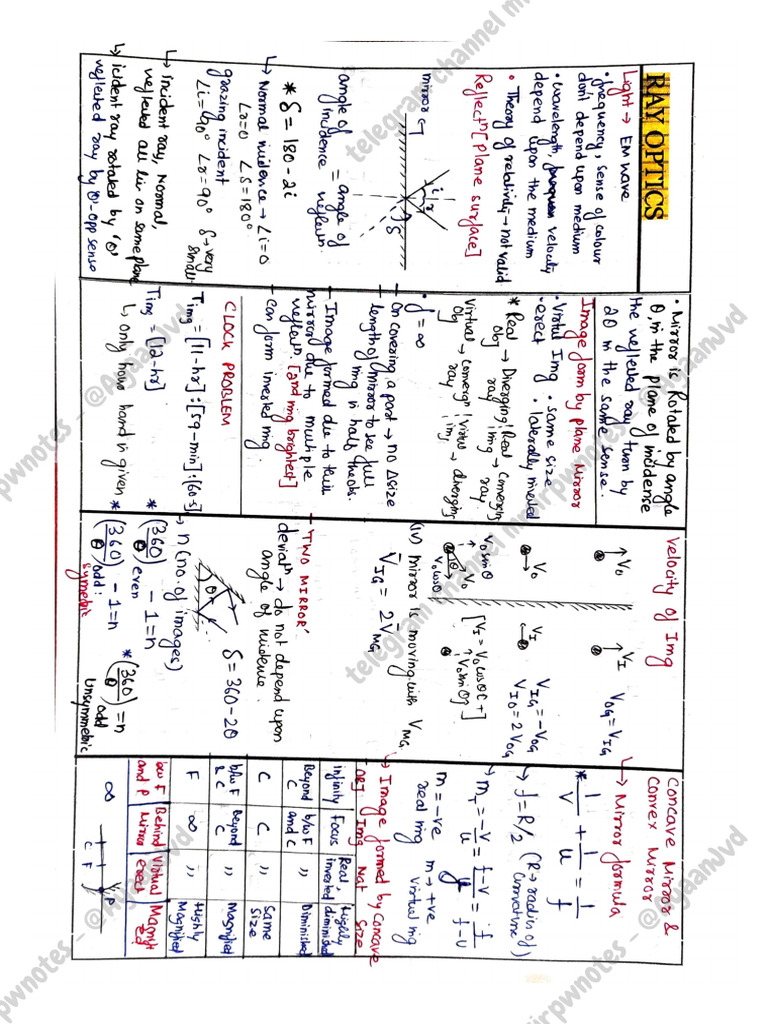 RAY OPTICS
Light → EM wave
• frequency, sense of colour
don't depend upon medium
• wavelength, velocity
depend upon the medium
• Theory of relativity - not valid
Reflectⁿ [Plane surface]
mirror
i r
δ
angle of incidence = angle of reflectⁿ
* δ = 180 - 2i
↳ Normal incidence → ∠i = 0
∠r = 0 ∠δ = 180°
grazing incident
∠i = 90° ∠r = 90° δ → very small
↳ incident ray, Normal,
reflected all lie on same plane
↳ icident ray rotated by 'θ'
reflected ray by 'θ' - opp sense
• Mirror is Rotated by angle
θ, in the plane of incidense
the reflected ray turn by
2θ in the same sense.
Image form by plane Mirror
• Virtul Img • same size
• erect • laterally inverted
* Real obj → Diverging ray | Real img → converging ray
Virtual obj → convergng ray | virtul img → diverging
• f = ∞
- On covering a part → no Δ size
- length of mirror to see full
img is half the obs.
- Image formed due to thick
mirror due to multiple
reflectⁿ. [2nd img brightest]
- can form inverted img.
CLOCK PROBLEM
T img = [11-hr] : [59-min] : [60-s]
T img = [12-hr]
↳ only hour hand is given
Velocity of Img
↑ V₀ ↑ V_I V_OG = V_IG
→ V₀ V_I ← V_IG = -V_OG
V_IO = 2V_OG
V₀ sinθ V₀ V₀ cosθ
[V_I = -V₀ cosθ î + V₀ sinθ ĵ]
(iv) mirror is moving with V_MG
V_IG = 2V_MG
"TWO MIRROR"
deviatⁿ → do not depend upon
angle of incidence.
θ δ = 360 - 2θ
→ n (no. of images)
* (360/θ) even - 1 = n
* (360/θ) odd - 1 = n symetric
* (360/θ) = n odd unsymmetric
Concave Mirror &
convex Mirror
↳ Mirror formula
* 1/v + 1/u = 1/f
→ f = R/2 (R → radius of curvature)
→ m_T = -v/u = f-v/f = f/f-u
m = -ve real img m → +ve virtual img
→ Image formed by concave
OBJ Img Nat size
infinity Focus Real, inverted Highly diminished
Beyond C b/w F and C " Diminished
C C " same size
b/w F & C Beyond C " Magnified
F ∞ " Highly Magnified
b/w F and P Behind Mirror Virtual erect Magnified
∞ C F P
telegram channel mrirpwnotes - @AgaanJvd